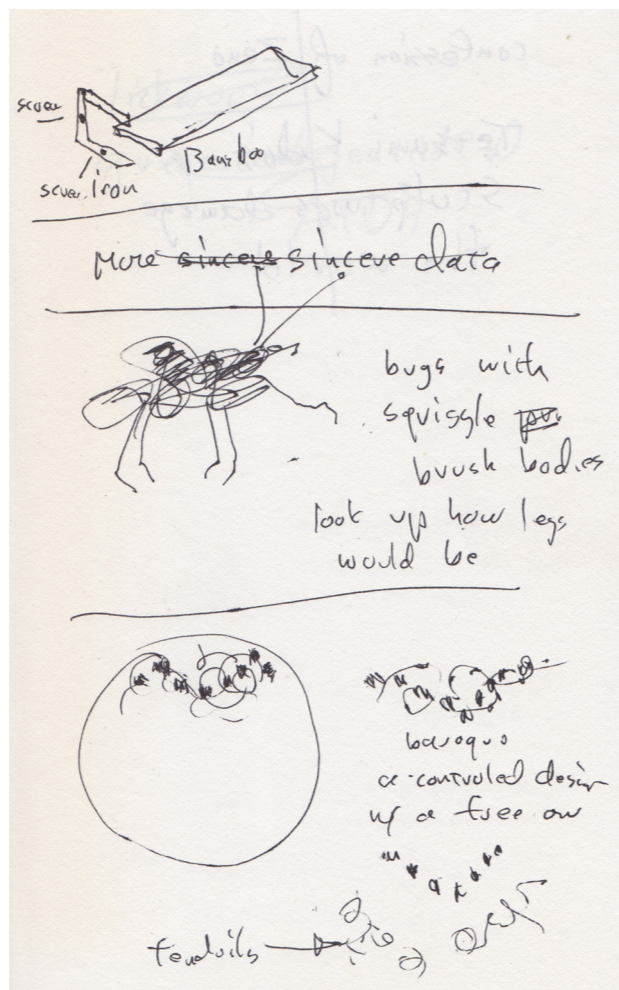 screw
Bamboo
screw iron
More sincere sincere data
bugs with
squiggle
brush bodies
look up how legs
would be
baroque
a controled design
w/ a free on
tendrils